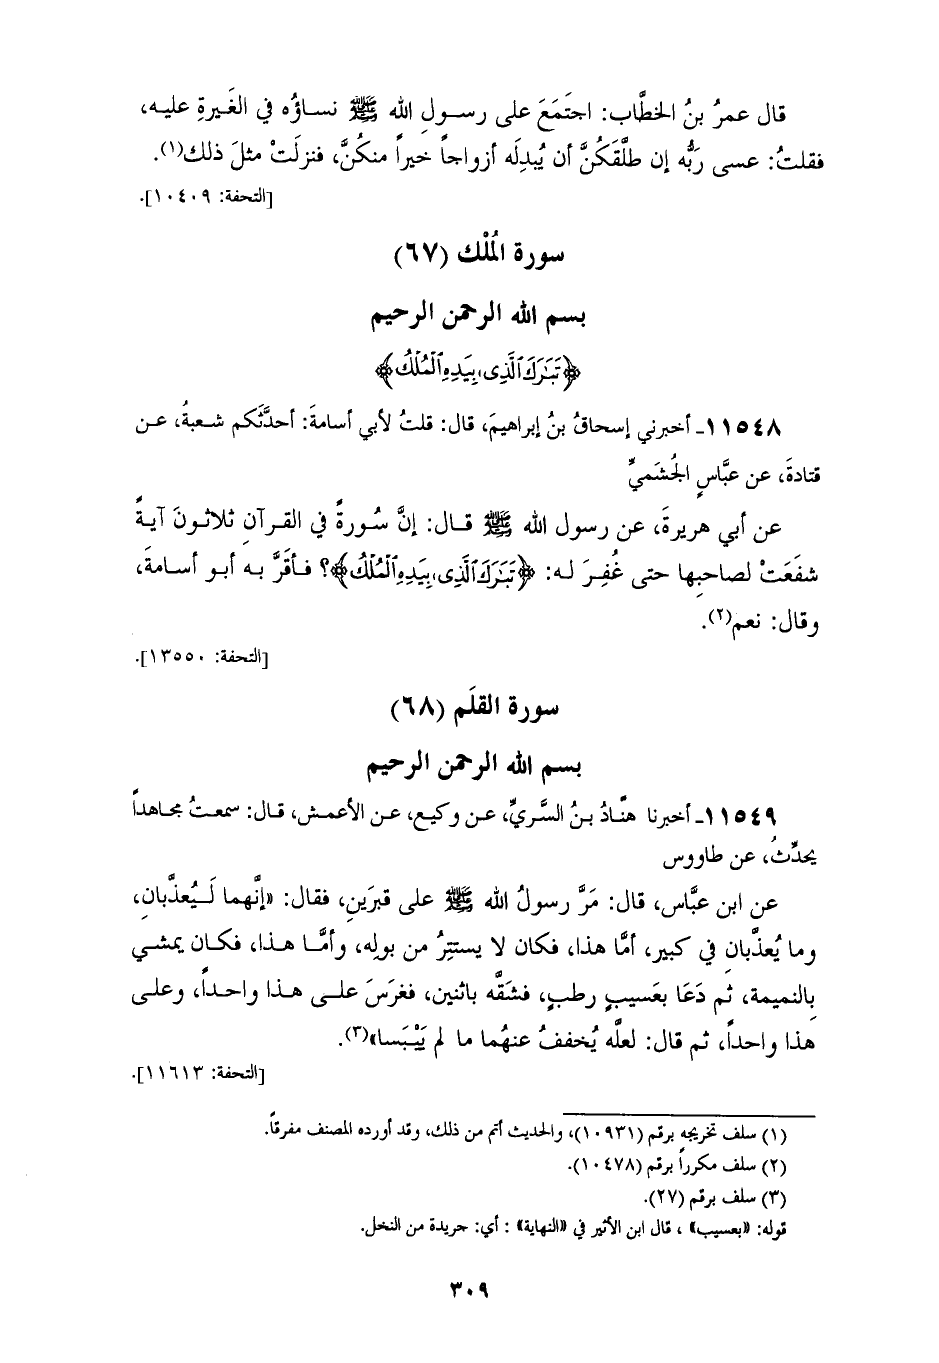 قال عمرُ بنُ الخطَّاب: اجتَمَعَ على رسولِ الله ﷺ نساؤُه في الغَيرةِ عليه،
فقلتُ: عسى رَبُّه إن طلَّقَكُنَّ أن يُبدِلَه أزواجاً خيراً منكُنَّ، فنزلَتْ مثلَ ذلك(١).
[التحفة: ١٠٤٠٩].
سورة المُلْك (٦٧)
بسم الله الرحمن الرحيم
﴿تَبَٰرَكَ ٱلَّذِى بِيَدِهِ ٱلْمُلْكُ﴾
١١٥٤٨ـ أخبرني إسحاقُ بنُ إبراهيمَ، قال: قلتُ لأبي أسامةَ: أحدَّثَكم شعبةُ، عن
قتادةَ، عن عبَّاسٍ الجُشَميِّ
عن أبي هريرةَ، عن رسول الله ﷺ قال: إنَّ سُورةً في القرآنِ ثلاثونَ آيةً
شفَعَتْ لصاحبِها حتى غُفِرَ له: ﴿تَبَٰرَكَ ٱلَّذِى بِيَدِهِ ٱلْمُلْكُ﴾؟ فأقَرَّ به أبو أسامةَ،
وقال: نعم(٢).
[التحفة: ١٣٥٥٠].
سورة القلَم (٦٨)
بسم الله الرحمن الرحيم
١١٥٤٩ـ أخبرنا هنَّادُ بنُ السَّريِّ، عن وكيع، عن الأعمش، قال: سمعتُ مجاهداً
يحدِّثُ، عن طاووس
عن ابن عبَّاس، قال: مَرَّ رسولُ الله ﷺ على قبرَينِ، فقال: «إنَّهما لَيُعذَّبانِ،
وما يُعذَّبانِ في كبير، أمَّا هذا، فكان لا يستتِرُ من بولِه، وأمَّا هذا، فكان يمشي
بالنميمة، ثم دَعَا بعَسيبٍ رطبٍ، فشقَّه باثنين، فغرَسَ على هذا واحداً، وعلى
هذا واحداً، ثم قال: لعلَّه يُخففُ عنهُما ما لم يَيْبَسا»(٣).
[التحفة: ١١٦١٣].
(١) سلف تخريجه برقم (١٠٩٣١)، والحديث أتم من ذلك، وقد أورده المصنف مفرقاً.
(٢) سلف مكرراً برقم (١٠٤٧٨).
(٣) سلف برقم (٢٧).
قوله: «بعسيب» ، قال ابن الأثير في «النهاية» : أي: جريدة من النخل.
٣٠٩